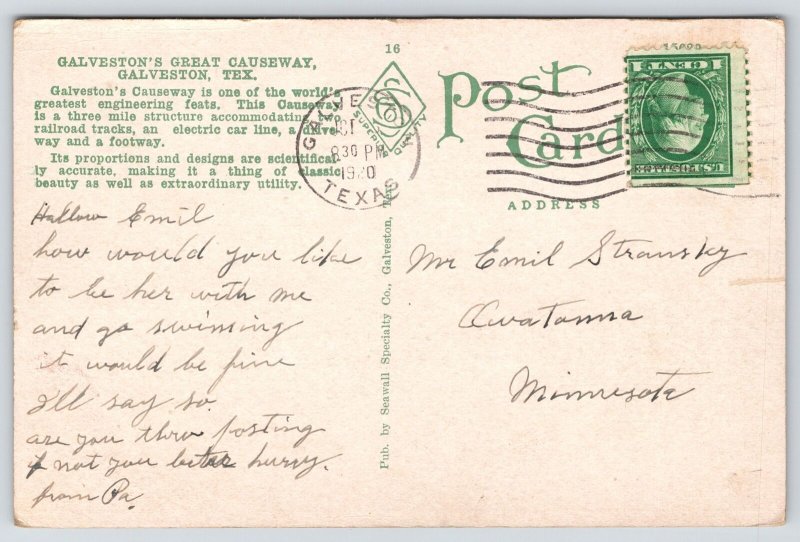 GALVESTON'S GREAT CAUSEWAY,
GALVESTON, TEX.
Galveston's Causeway is one of the world's
greatest engineering feats. This Causeway
is a three mile structure accommodating
railroad tracks, an electric car line, a drive
way and a footway.
Its proportions and designs are scientifical
ly accurate, making it a thing of classic
beauty as well as extraordinary utility.
16
SUPERIOR QUALITY
GALVESTON
OCT
8 30 PM
1920
TEXAS
Post Card
ADDRESS
1 CENT 1
U.S. POSTAGE
Hallow Emil
how would you like
to be her with me
and go swimming
it would be fine
I'll say so
are you thru posting
if not you better hurry.
from Pa.
Pub. by Seawall Specialty Co., Galveston, Tex.
Mr Emil Stransky
Owatonna
Minnesota